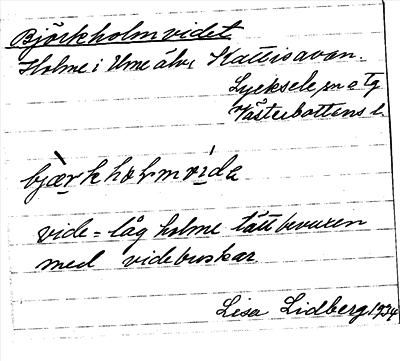 Björkholmvidet
Holme i Ume älv, Kattisavan.
Lycksele sn o tg
Västerbottens l.
bjæ̀rkhoLmvìda
vide = låg holme tätt bevuxen
med videbuskar
Lisa Lidberg 1934